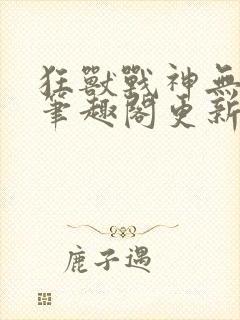 狂獸戰神無
筆趣閣更新
鹿子遇